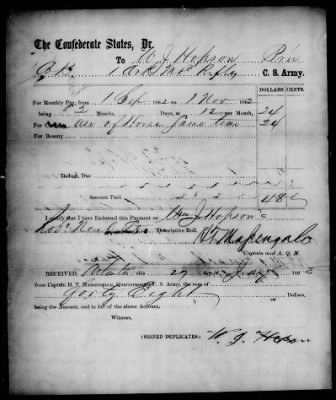 The Confederate States, Dr.
To W J Hopson Priv
1 Ark Mt Rifles C. S. Army.
DOLLARS. CENTS.
For Monthly Pay, from 1 Sep 1862 to 1 Nov 1862
being 2 Months, Days, at 12 per Month, 24
For use of Horse same time 24
For Bounty
Deduct, Due
Amount Paid 48
I certify that I have Endorsed this Payment on Wm J Hopson's
Descriptive Roll.
H T Massengale
Captain and A. Q. M.
RECEIVED, Atlanta this 27 day of 186
from Captain H. T. MASSENGALE, Quartermaster C. S. Army, the sum of
Forty Eight Dollars,
being the Amount, and in full of the above Account.
Witness.
(SIGNED DUPLICATES.) W. J. Hopson